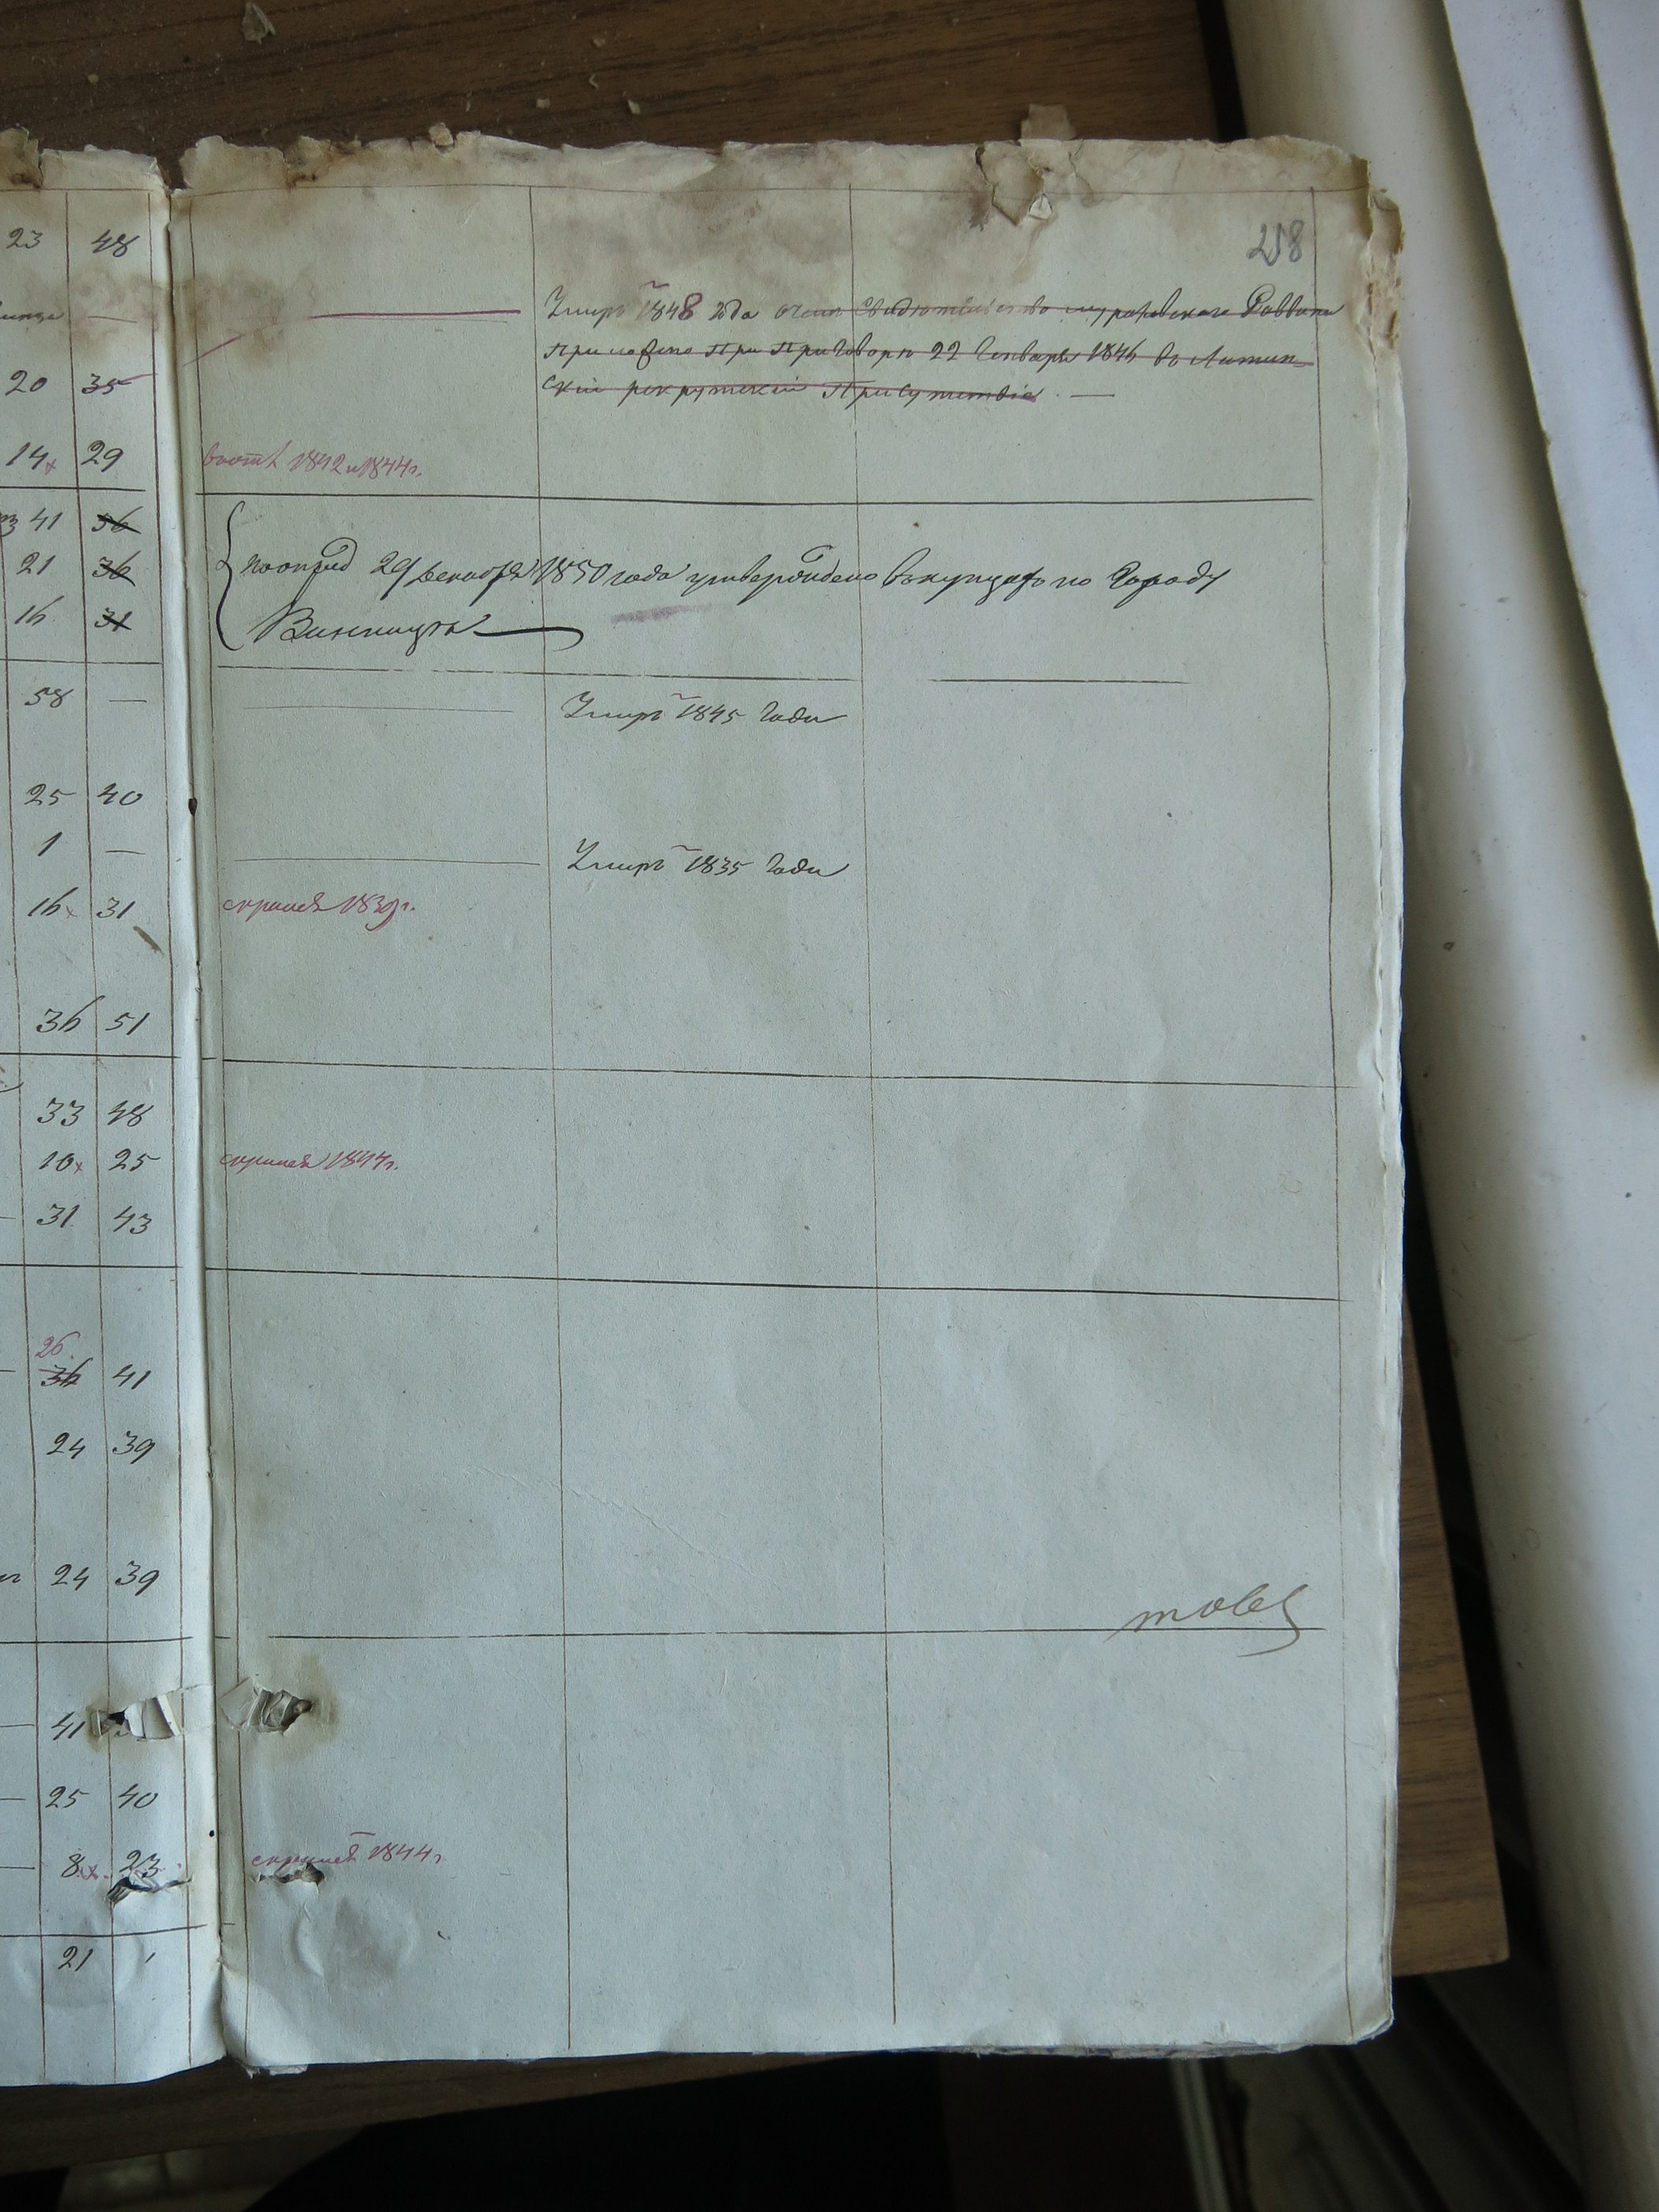 218
23 48
Умиръ 1848 года о чемъ свидѣтельство мурафовскаго Раввина
приложено при приговорѣ 22 Генваря 1846 въ Литин-
скій рекрутскій присутствіи. —
20 35
14 29
1842 и 1844 г.
41 36
21 36
29 декабря 1850 года утверждено въ купцахъ по городу
16 31
Винницы
58 —
Умиръ 1845 года
25 40
1 —
Умиръ 1835 года
16 31
скрылся 1839 г.
36 51
33 48
10 25
скрылся 1844 г.
31 43
26.
36 41
24 39
24 39
41
25 40
8 23
скрылся 1844 г.
21